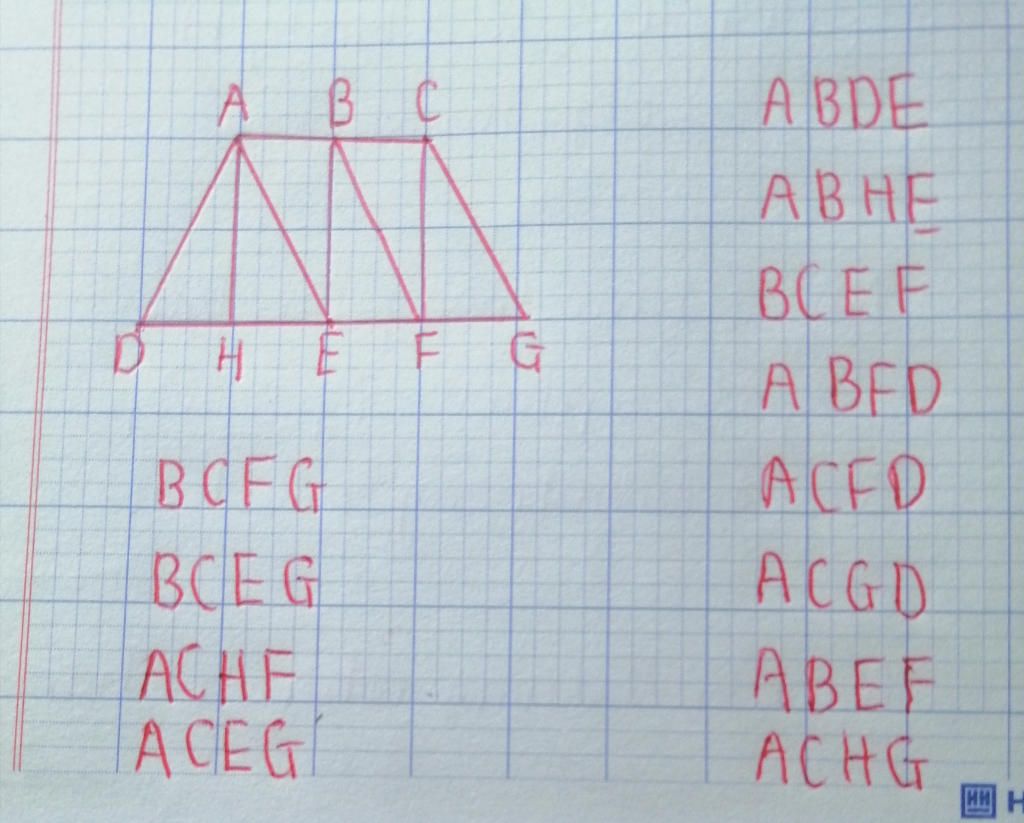 A B C
D H E F G
ABDE
ABHE
BCEF
ABFD
ACFD
ACGD
ABEF
ACHG
BCFG
BCEG
ACHF
ACEG